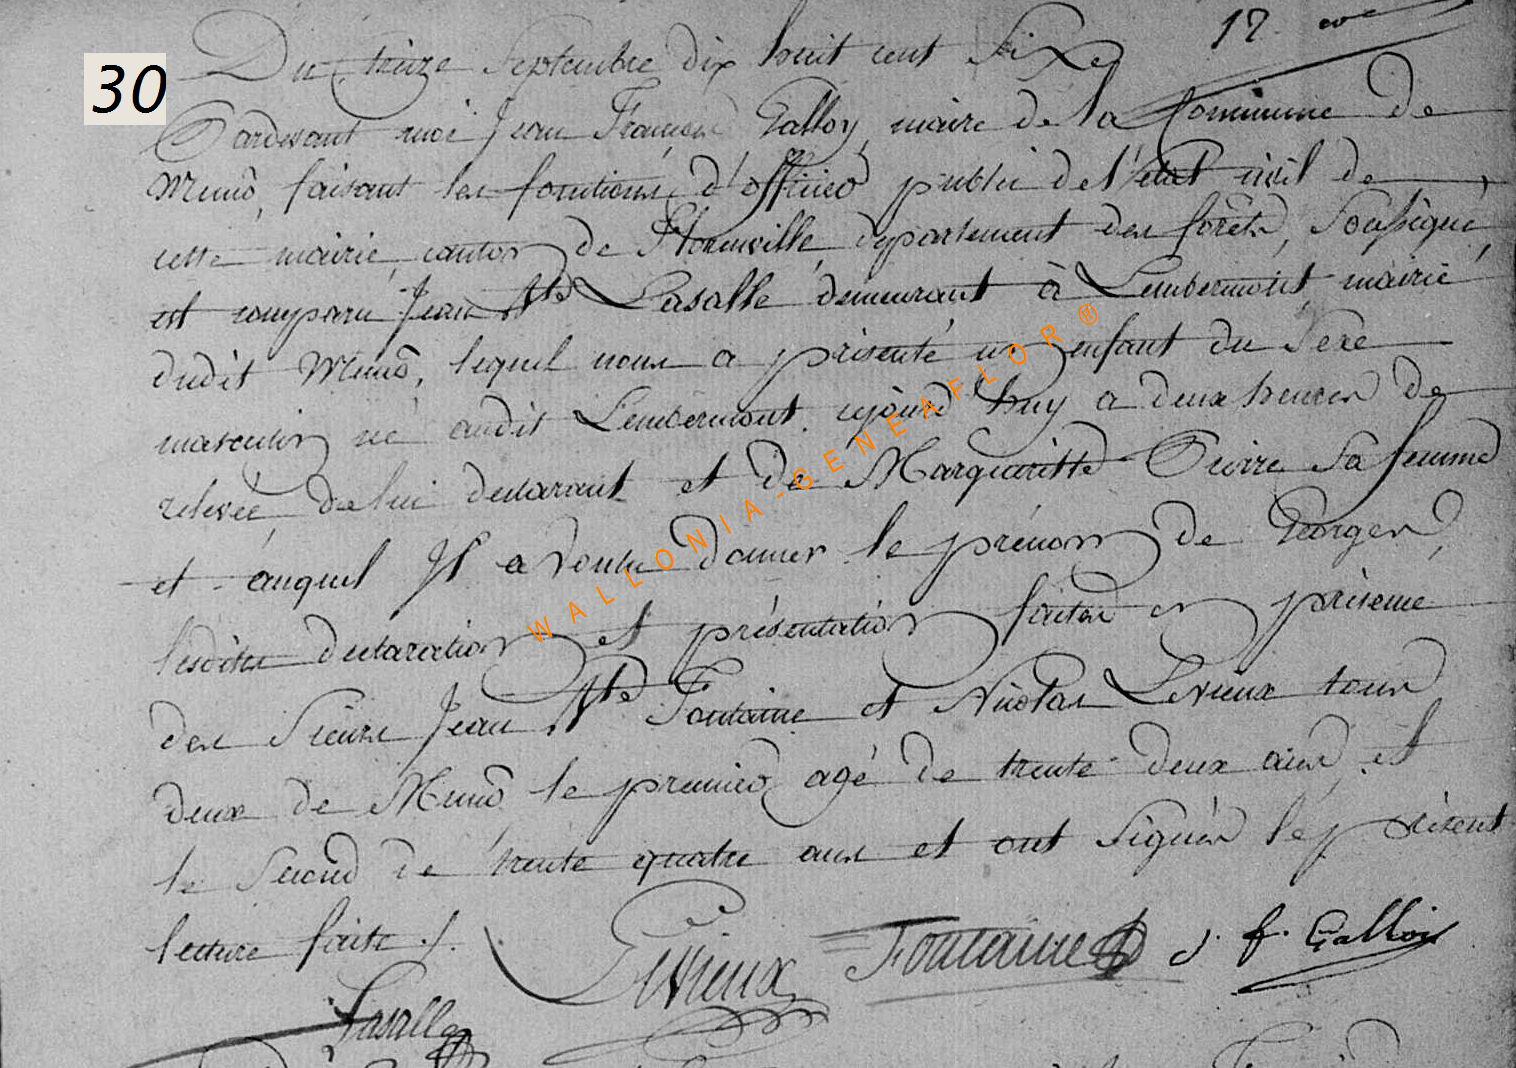 17. eme
30
Du treize Septembre dix huit cent Six
Pardevant moi Jean François Galloy, maire de la Commune de
Muno, faisant les fonctions d'officier public de l'état civil de
cette mairie, canton de Florenville, département des forêts, Soussigné,
est comparu Jean Bte Lasalle demeurant à Lembermont, mairie
dudit Muno, lequel nous a présenté un enfant du Sexe
masculin né audit Lembermont, aujourd'huy a deux heures de
relevée, de lui declarant et de Margueritte sa femme
et auquel Il a voulu donner le prénom de Georges,
lesdites declaration et présentation faites en présence
des Sieurs Jean Bte Fontaine et Nicolas Levieux tous
deux de Muno le premier agé de trente deux ans, et
le Second de trente quatre ans et ont Signés le présent
lecture faite ./.
Levieux Fontaine J. f. Galloy
Lasalle
WALLONIA-GENEAFLOR®